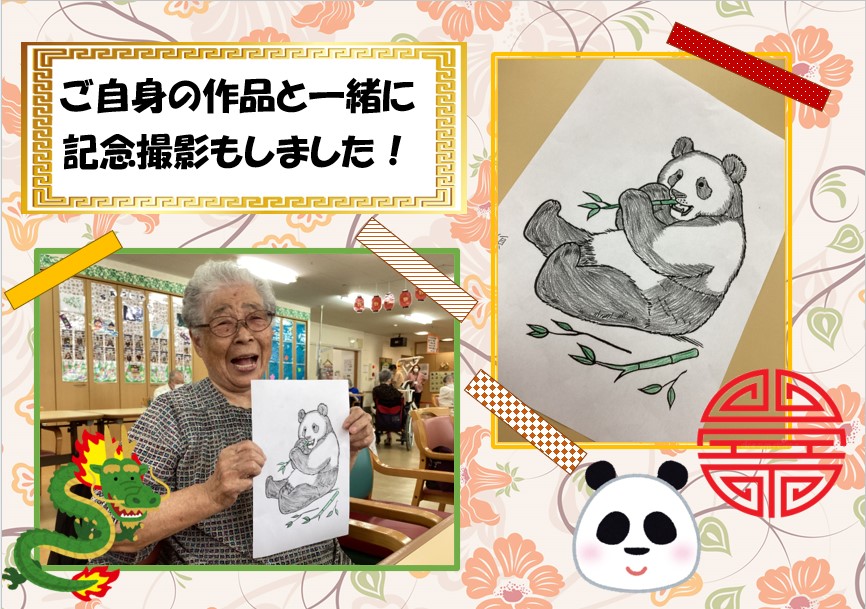 ご自身の作品と一緒に
記念撮影もしました！